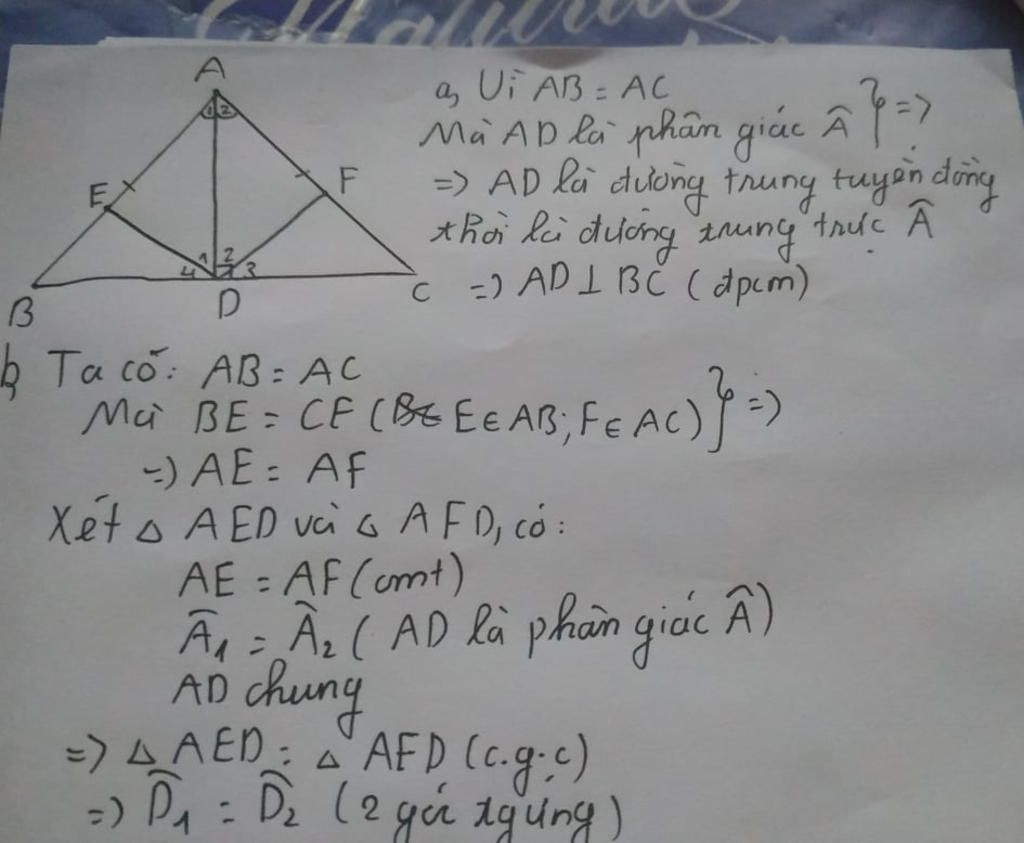 Natural
A
1 2
E
F
1 2
4 3
B
D
C
a, Vì AB = AC
Mà AD là phân giác Â } =>
=> AD là đường trung tuyến đồng
thời là đường trung trực Â
=> AD ⊥ BC (đpcm)
b, Ta có: AB = AC
Mà BE = CF ( E ∈ AB; F ∈ AC) } =>
=> AE = AF
Xét △ AED và △ AFD, có:
AE = AF (cmt)
Â₁ = Â₂ ( AD là phân giác Â)
AD chung
=> △ AED = △ AFD (c.g.c)
=> D̂₁ = D̂₂ (2 góc tgứng)